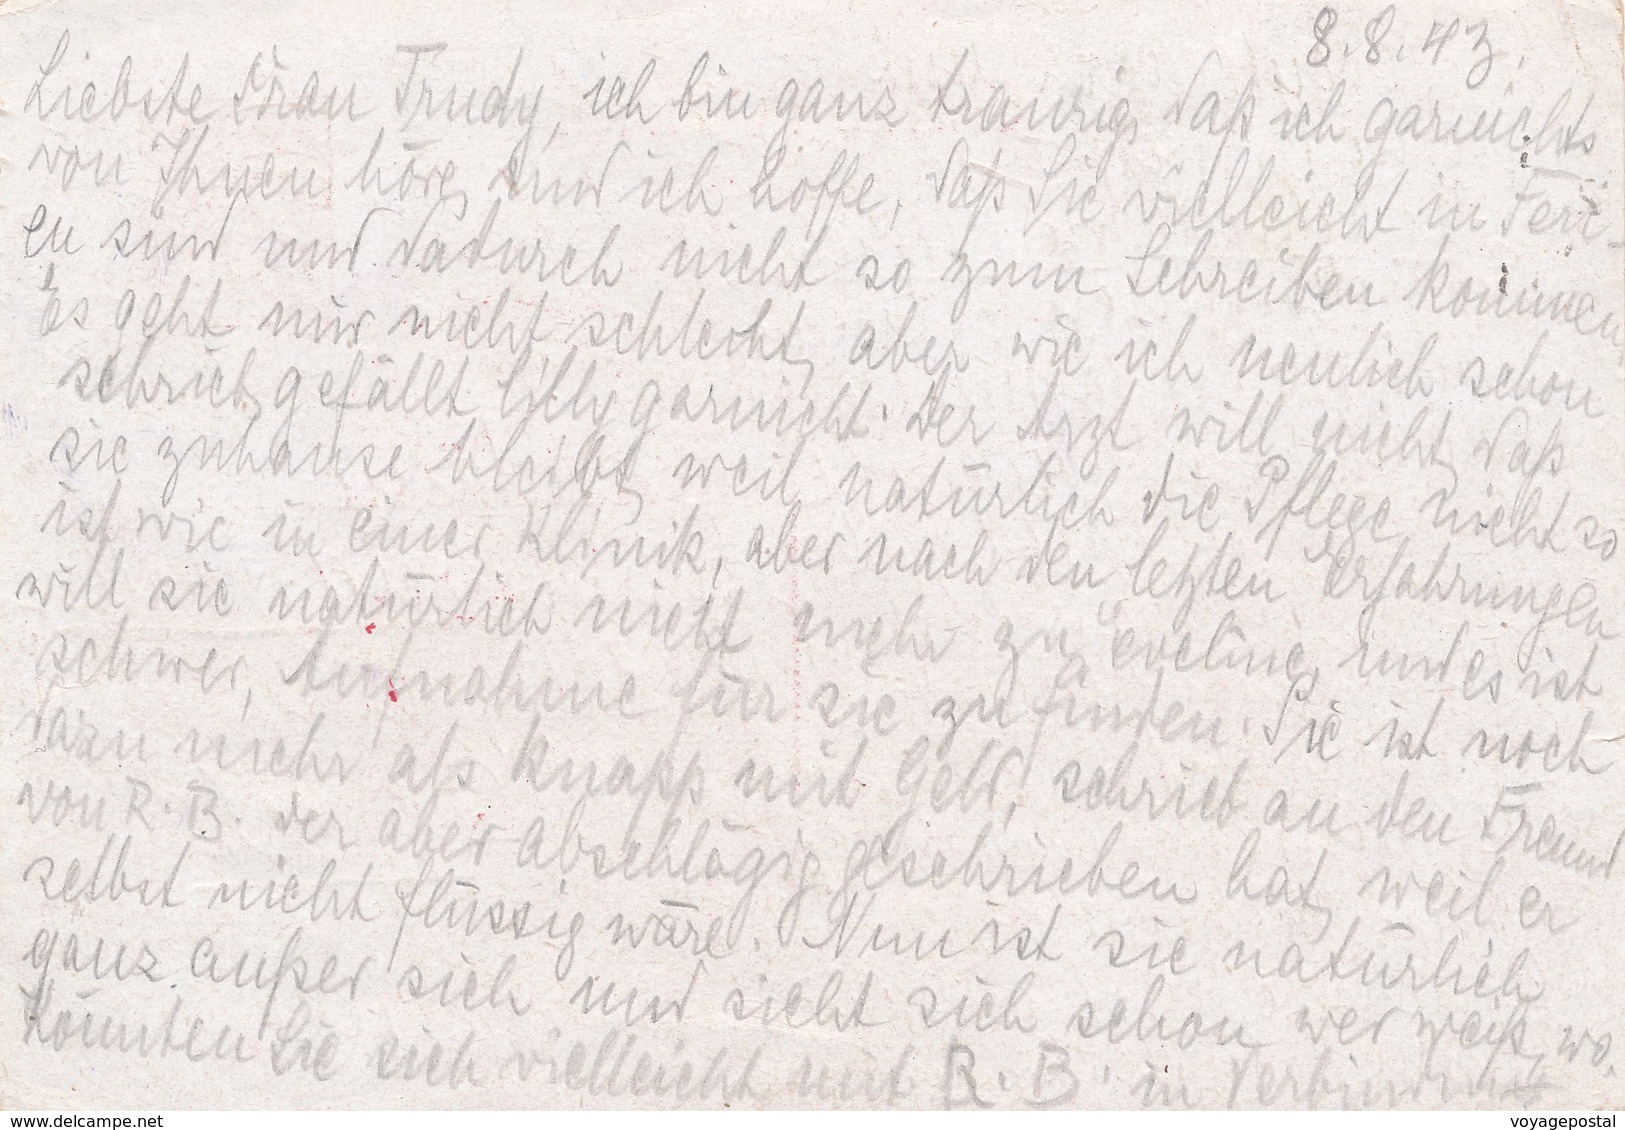 8.8.43.
Liebste Frau Trudy, ich bin ganz traurig, daß ich garnichts
von Ihnen höre, und ich hoffe, daß Sie vielleicht in Feri-
en sind und dadurch nicht so zum Schreiben kommen.
Es geht mir nicht schlecht, aber wie ich neulich schon
schrieb, gefällt Lilly garnicht. Der Arzt will nicht, daß
sie zuhause bleibt, weil natürlich die Pflege nicht so
ist, wie in einer Klinik, aber nach den letzten Erfahrungen
will sie natürlich nicht mehr zu Eveline, und es ist
schwer, Aufnahme für sie zu finden. Sie ist noch
dazu mehr als knapp mit Geld, schrieb an den Freund
von R. B. der aber abschlägig geschrieben hat, weil er
selbst nicht flüssig wäre. Nun ist sie natürlich
ganz außer sich und sieht sich schon wer weiß, wo.
Könnten Sie sich vielleicht mit R. B. in Verbindung
hippostcard.com
voyagepostal